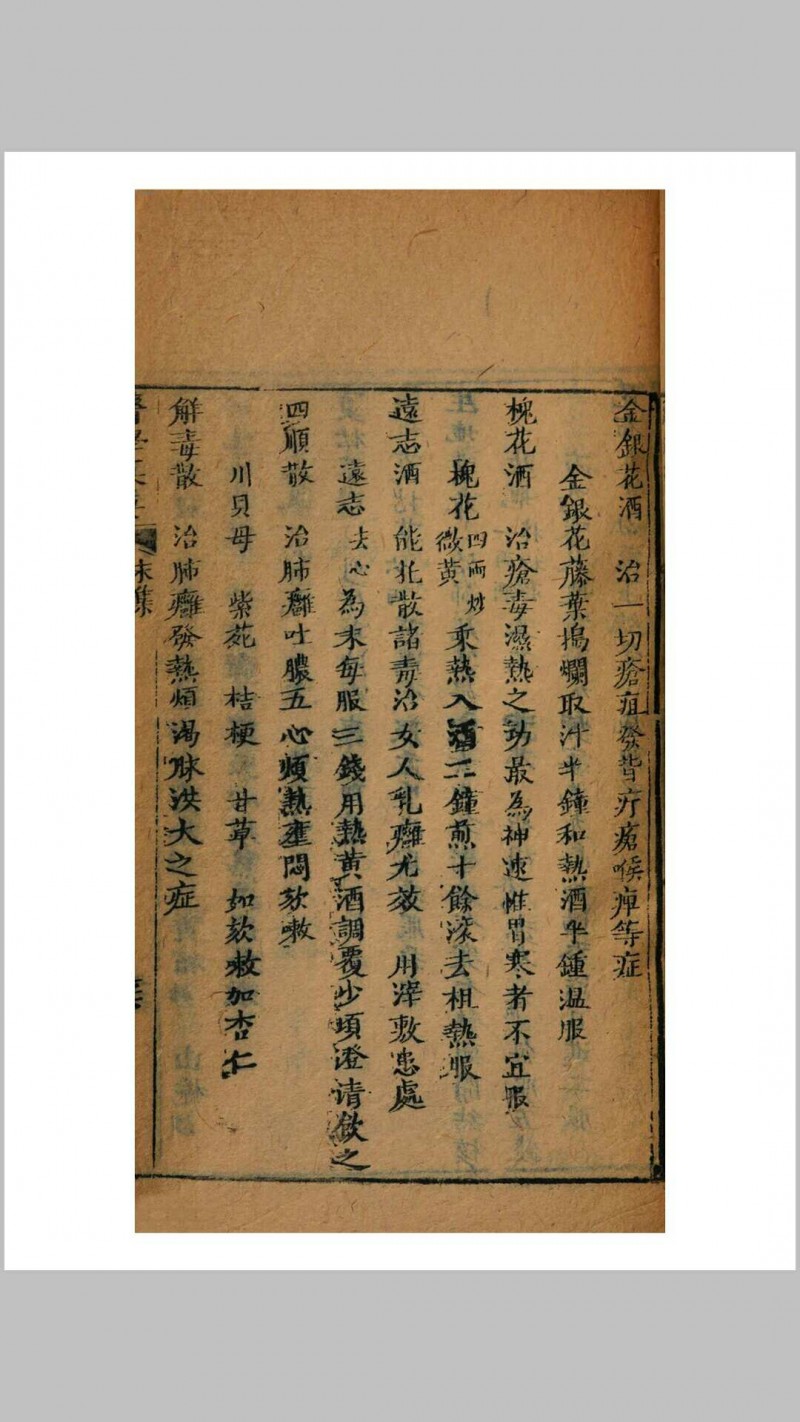 金銀花酒　治一切瘡疽發背疔瘡喉痺等症
金銀花藤葉搗爛取汁半鐘和熱酒半鍾温服
槐花酒　治瘡毒濕熱之功最為神速惟胃寒者不宜服
槐花四兩炒微黃乘熱入酒二鐘煎十餘滚去柤熱服
遠志酒　能北散諸毒治女人乳癰尤效　用滓敷患處
遠志去心為末每服三錢用熱黃酒調覆少頃澄请飲之
四順散　治肺癰吐膿五心煩熱壅悶欬嗽
川貝母　紫菀　桔梗　甘草　如欬嗽加杏仁
解毒散　治肺癰發熱煩渴脉洪大之症